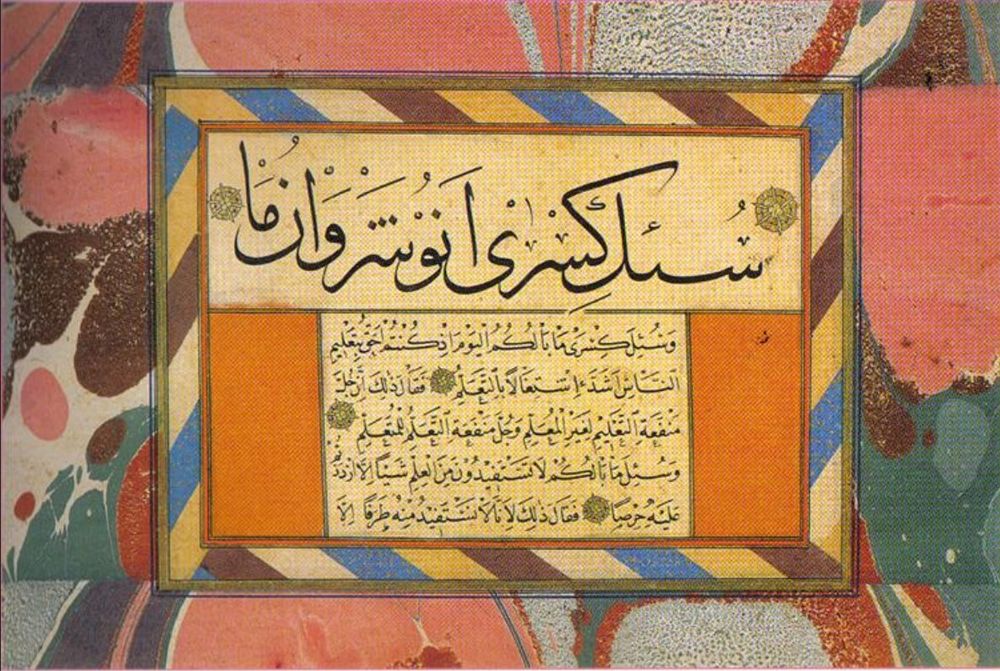 سُئل كِسْرٰى اَنُوشَرْوَانُ مَا
وَسُئِلَ كِسْرٰى مَا بَالُكُمُ الْيَوْمَ اِذْ كُنْتُمْ اَحَقَّ بِتَعْلِيمِ
النَّاسِ اَشَدَّ اِشْتِغَالًا بِالتَّعَلُّمِ فَقَالَ ذٰلِكَ لِاَنَّ جُلَّ
مَنْفَعَةِ التَّعْلِيمِ لِغَيْرِ الْمُعَلِّمِ وَجُلَّ مَنْفَعَةِ التَّعَلُّمِ لِلْمُتَعَلِّمِ
وَسُئِلَ مَا بَالُكُمْ لَا تَسْتَفِيدُونَ مِنَ الْعِلْمِ شَيْئًا اِلَّا ازْدَدْتُمْ
عَلَيْهِ حِرْصًا فَقَالَ ذٰلِكَ لِاَنَّا لَا نَسْتَفِيدُ مِنْهُ طَرَفًا اِلَّا